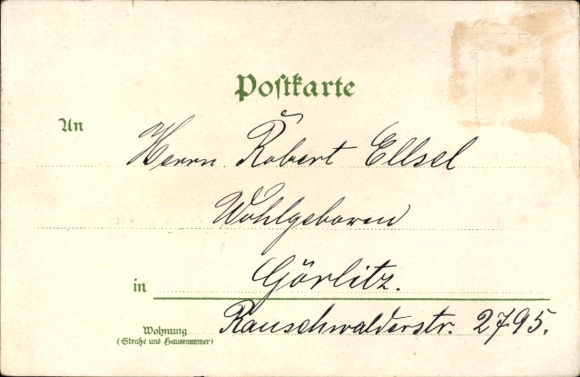 Postkarte
An Herrn Robert Ellsel
Wohlgeboren
in Görlitz.
Wohnung Rauschwalderstr. 2795.
(Straße und Hausnummer)